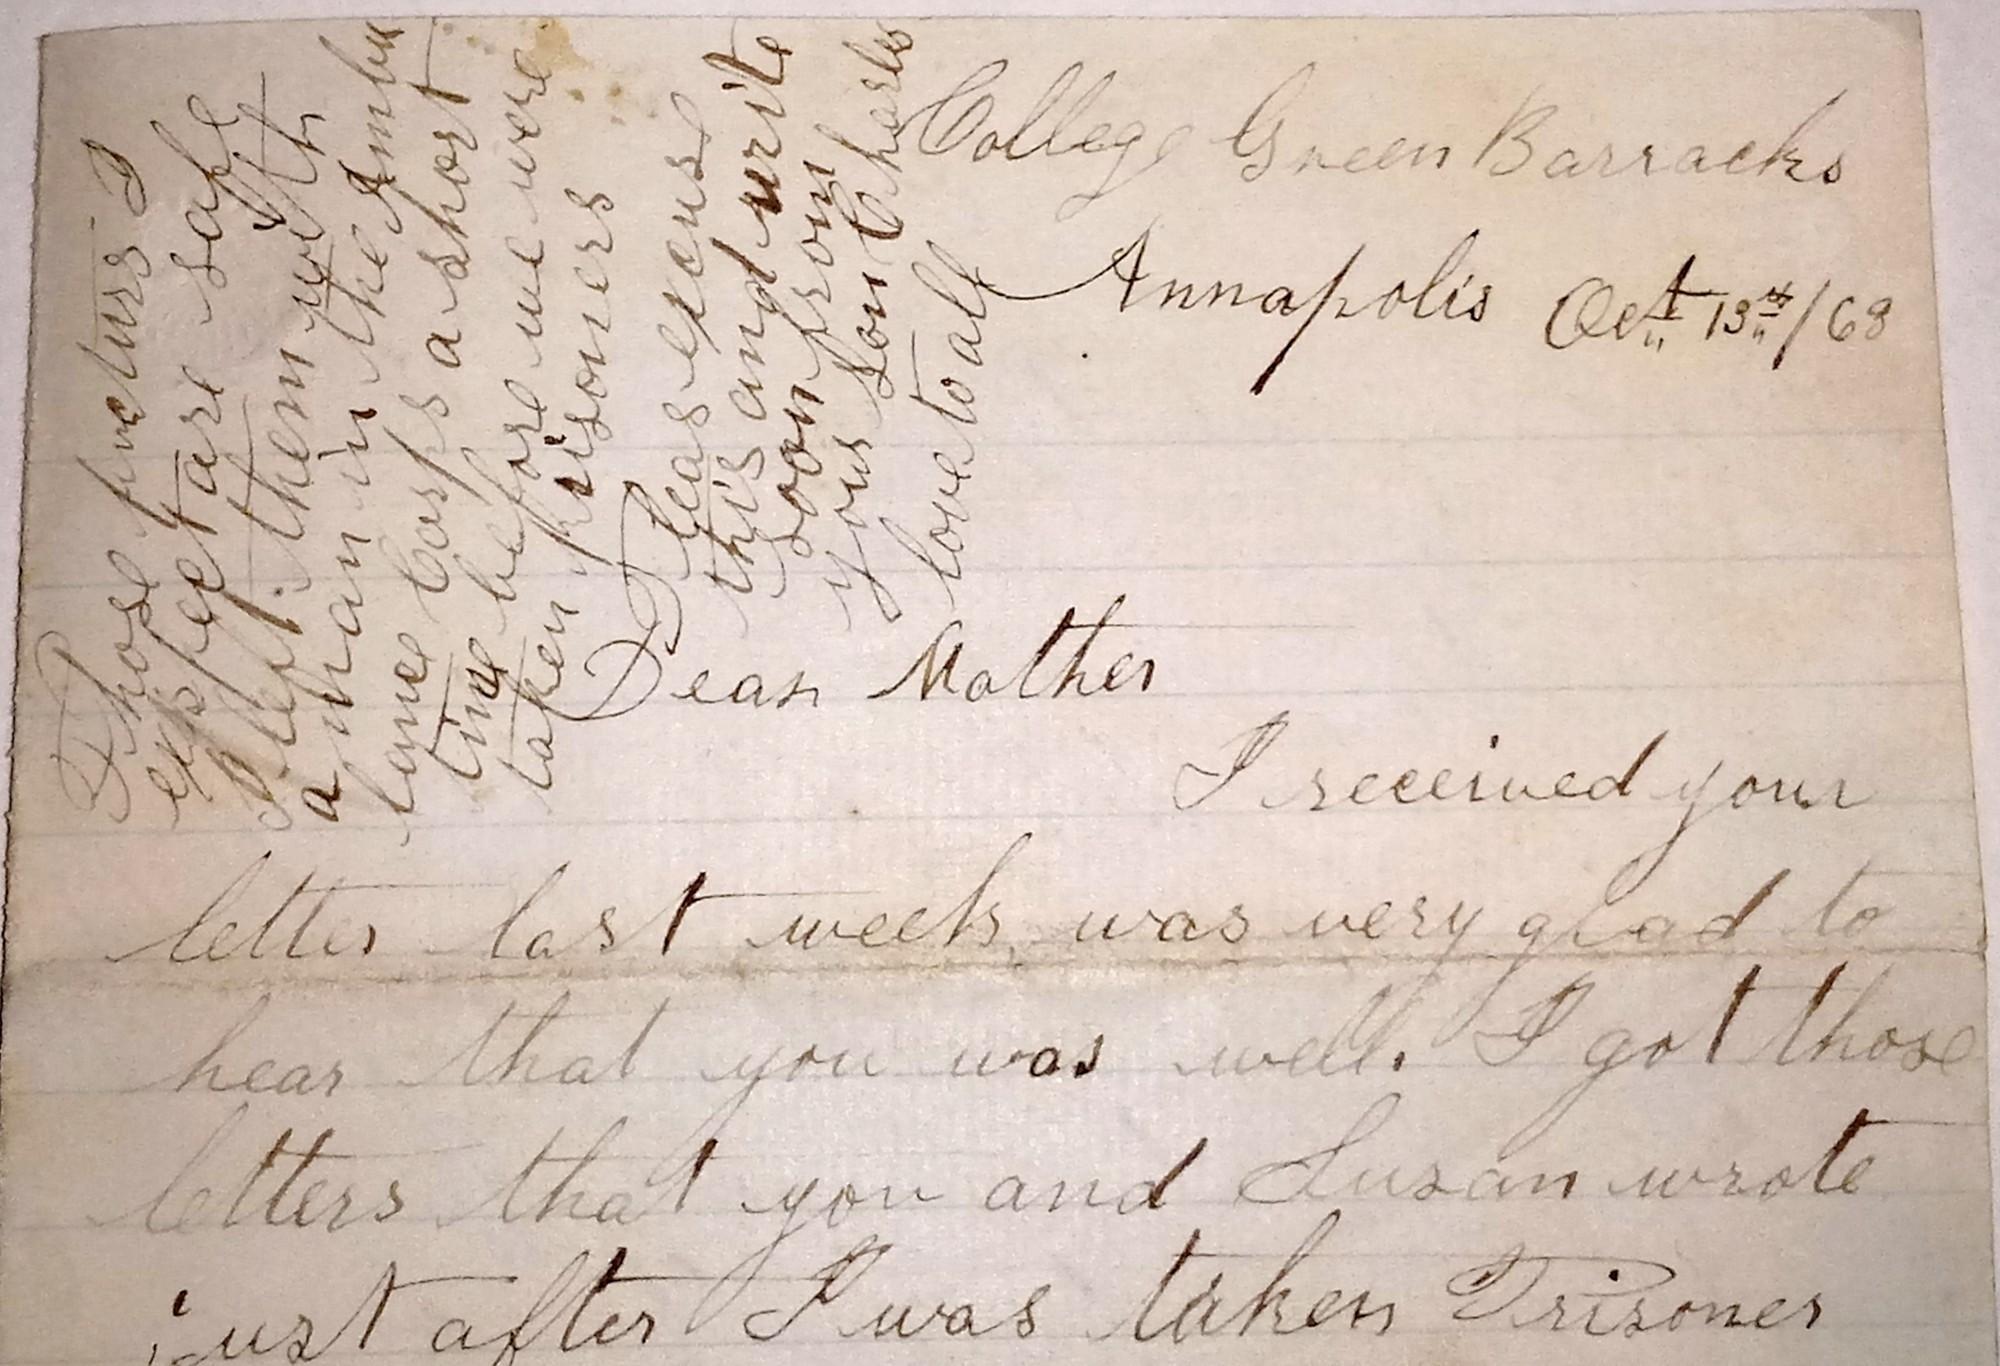 College Green Barracks
Annapolis Oct 13th/63
Dear Mother
I received your
letter last week, was very glad to
hear that you was well. I got those
letters that you and Susan wrote
just after I was taken Prisoner
Those picturs I
expect are safe
I left them with
a man in the Ambu
lance Corps a short
time before we were
taken prisoners
Pleas excuse
this and write
soon from
your Son Charles
love to all